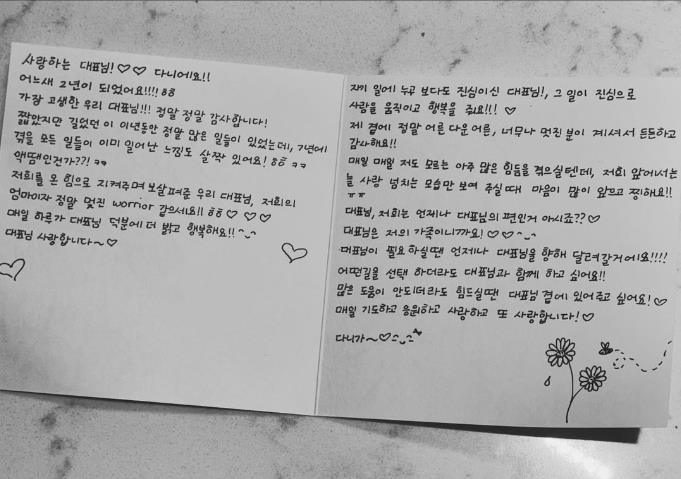 사랑하는 대표님! ♡♡ 다니에요!!
어느새 2년이 되었어요!!!! ㅎㅎ
가장 고생한 우리 대표님!!! 정말 정말 감사합니다!
짧았지만 길었던 이 이년동안 정말 많은 일들이 있었는데, 7년에
겪을 모든 일들이 이미 일어난 느낌도 살짝 있어요! ㅎㅎ ㅋㅋ
액땜인건가??! ㅋㅋ
저희를 온 힘으로 지켜주며 보살펴준 우리 대표님, 저희의
엄마이자 정말 멋진 worrior 같으세요!! ㅎㅎ ♡ ♡ ♡
매일 하루가 대표님 덕분에 더 밝고 행복해요!! ^_^
대표님 사랑합니다~ ♡
자기 일에 누구 보다도 진심이신 대표님!, 그 일이 진심으로
사람을 움직이고 행복을 줘요!!! ♡
제 곁에 정말 어른 다운 어른, 너무나 멋진 분이 계셔서 든든하고
감사해요!!
매일 매일 저도 모르는 아주 많은 힘듦을 겪으실텐데, 저희 앞에서는
늘 사랑 넘치는 모습만 보여 주실 때 마음이 많이 아프고 찡해요!!
ㅠㅠ
대표님, 저희는 언제나 대표님의 편인거 아시죠?? ♡
대표님은 저의 가족이니까요! ♡♡ ^_^
대표님이 필요하실땐 언제나 대표님을 향해 달려갈거에요!!!!
어떤길을 선택 하더라도 대표님과 함께 하고 싶어요!!
많은 도움이 안되더라도 힘드실땐 대표님 곁에 있어주고 싶어요! ♡
매일 기도하고 응원하고 사랑하고 또 사랑합니다! ♡
다니가~ ♡ ^_^